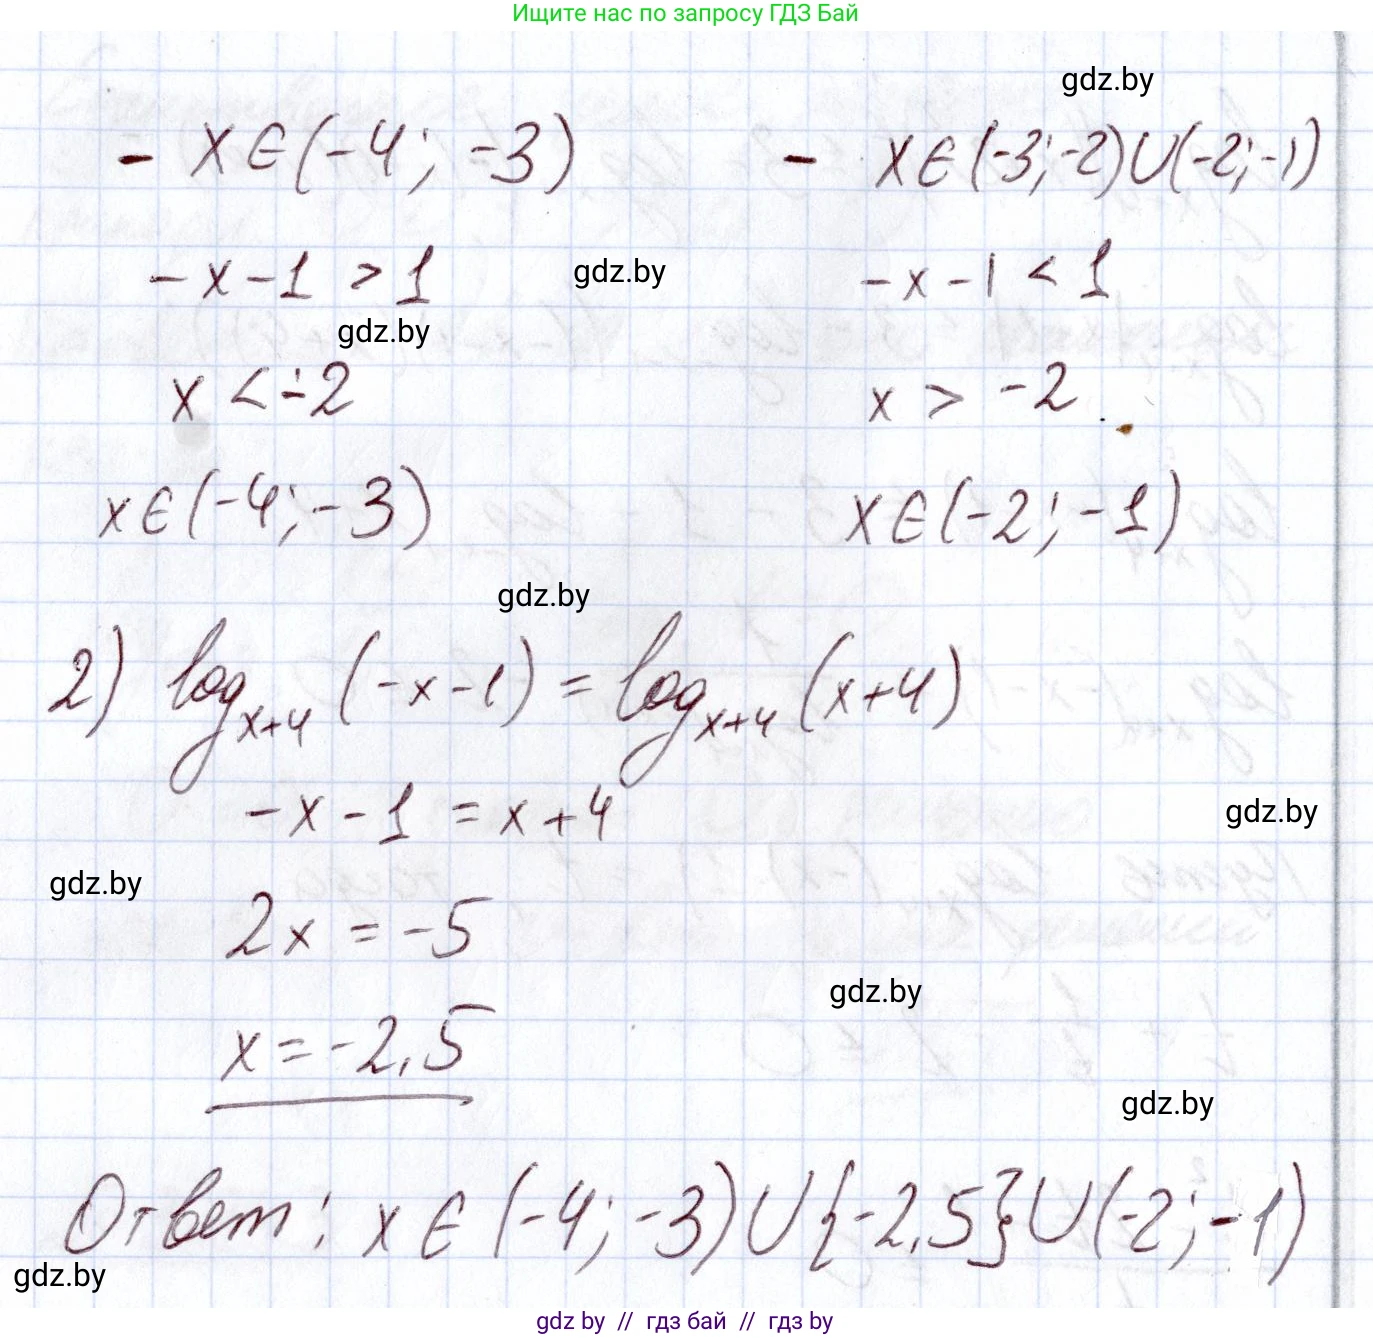 Ищите нас по запросу ГДЗ Бай
gdz.by
- x∈(-4; -3) - x∈(-3;-2)∪(-2;-1)
-x-1 > 1 gdz.by -x-1 < 1
gdz.by
x < -2 x > -2
x∈(-4;-3) x∈(-2; -1)
gdz.by
2) log_{x+4} (-x-1) = log_{x+4} (x+4)
-x-1 = x+4 gdz.by
gdz.by
2x = -5
gdz.by
x = -2,5
gdz.by
Ответ: x∈(-4; -3)∪{-2,5}∪(-2; -1)
gdz.by
gdz by // гдз бай // гдз by